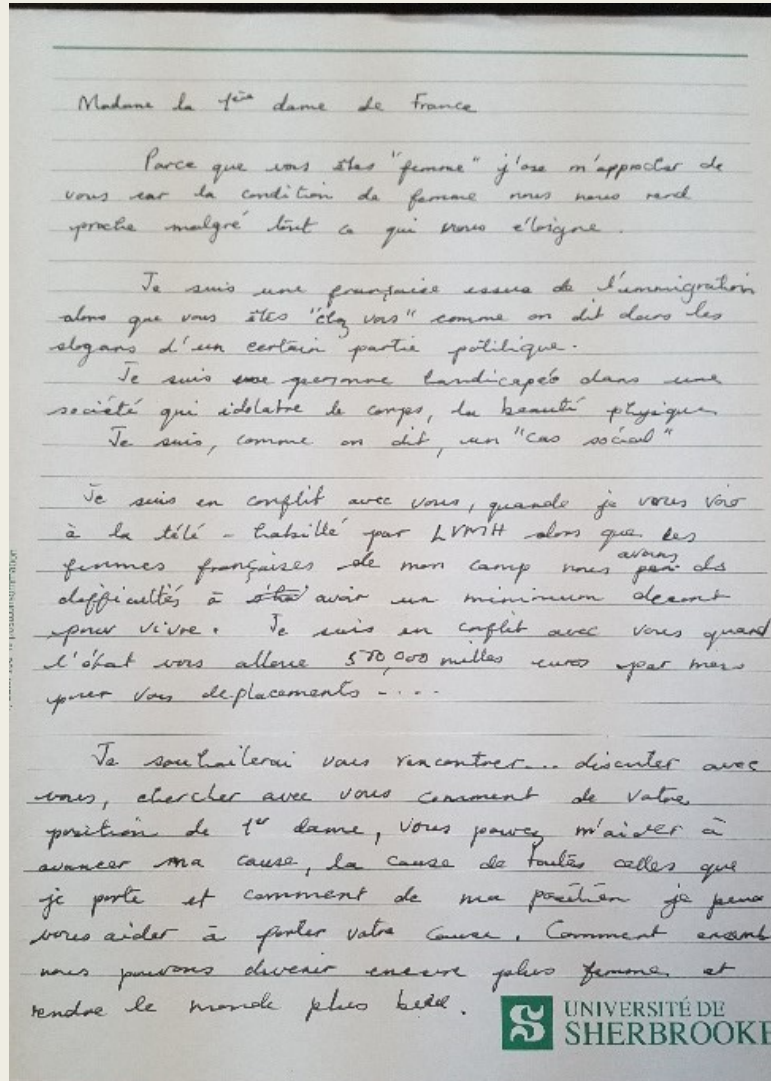 Madame la 1ère dame de France
Parce que vous êtes "femme" j'ose m'approcher de
vous car la condition de femme nous nous rend
proche malgré tout ce qui nous éloigne.
Je suis une française issue de l'immigration
alors que vous êtes "chez vous" comme on dit dans les
slogans d'un certain partie politique.
Je suis une personne handicapée dans une
société qui idolatre le corps, la beauté physique
Je suis, comme on dit, un "cas social"
Je suis en conflit avec vous, quande je vous vois
à la télé - habillé par LVMH alors que les
femmes françaises de mon camp nous avons des
difficultés à avoir un minimum decent
pour vivre. Je suis en conflit avec vous quand
l'état vous alloue 570,000 milles euros par mois
pour vos deplacements - ...
Je souhaiterai vous rencontrer... discuter avec
vous, chercher avec vous comment de votre
position de 1er dame, vous pouvez m'aider à
avancer ma cause, la cause de toutes celles que
je porte et comment de ma position je peux
vous aider à porter votre cause. Comment
nous pouvons devenir encore plus femme et
rendre le monde plus beau.
UNIVERSITÉ DE
SHERBROOKE